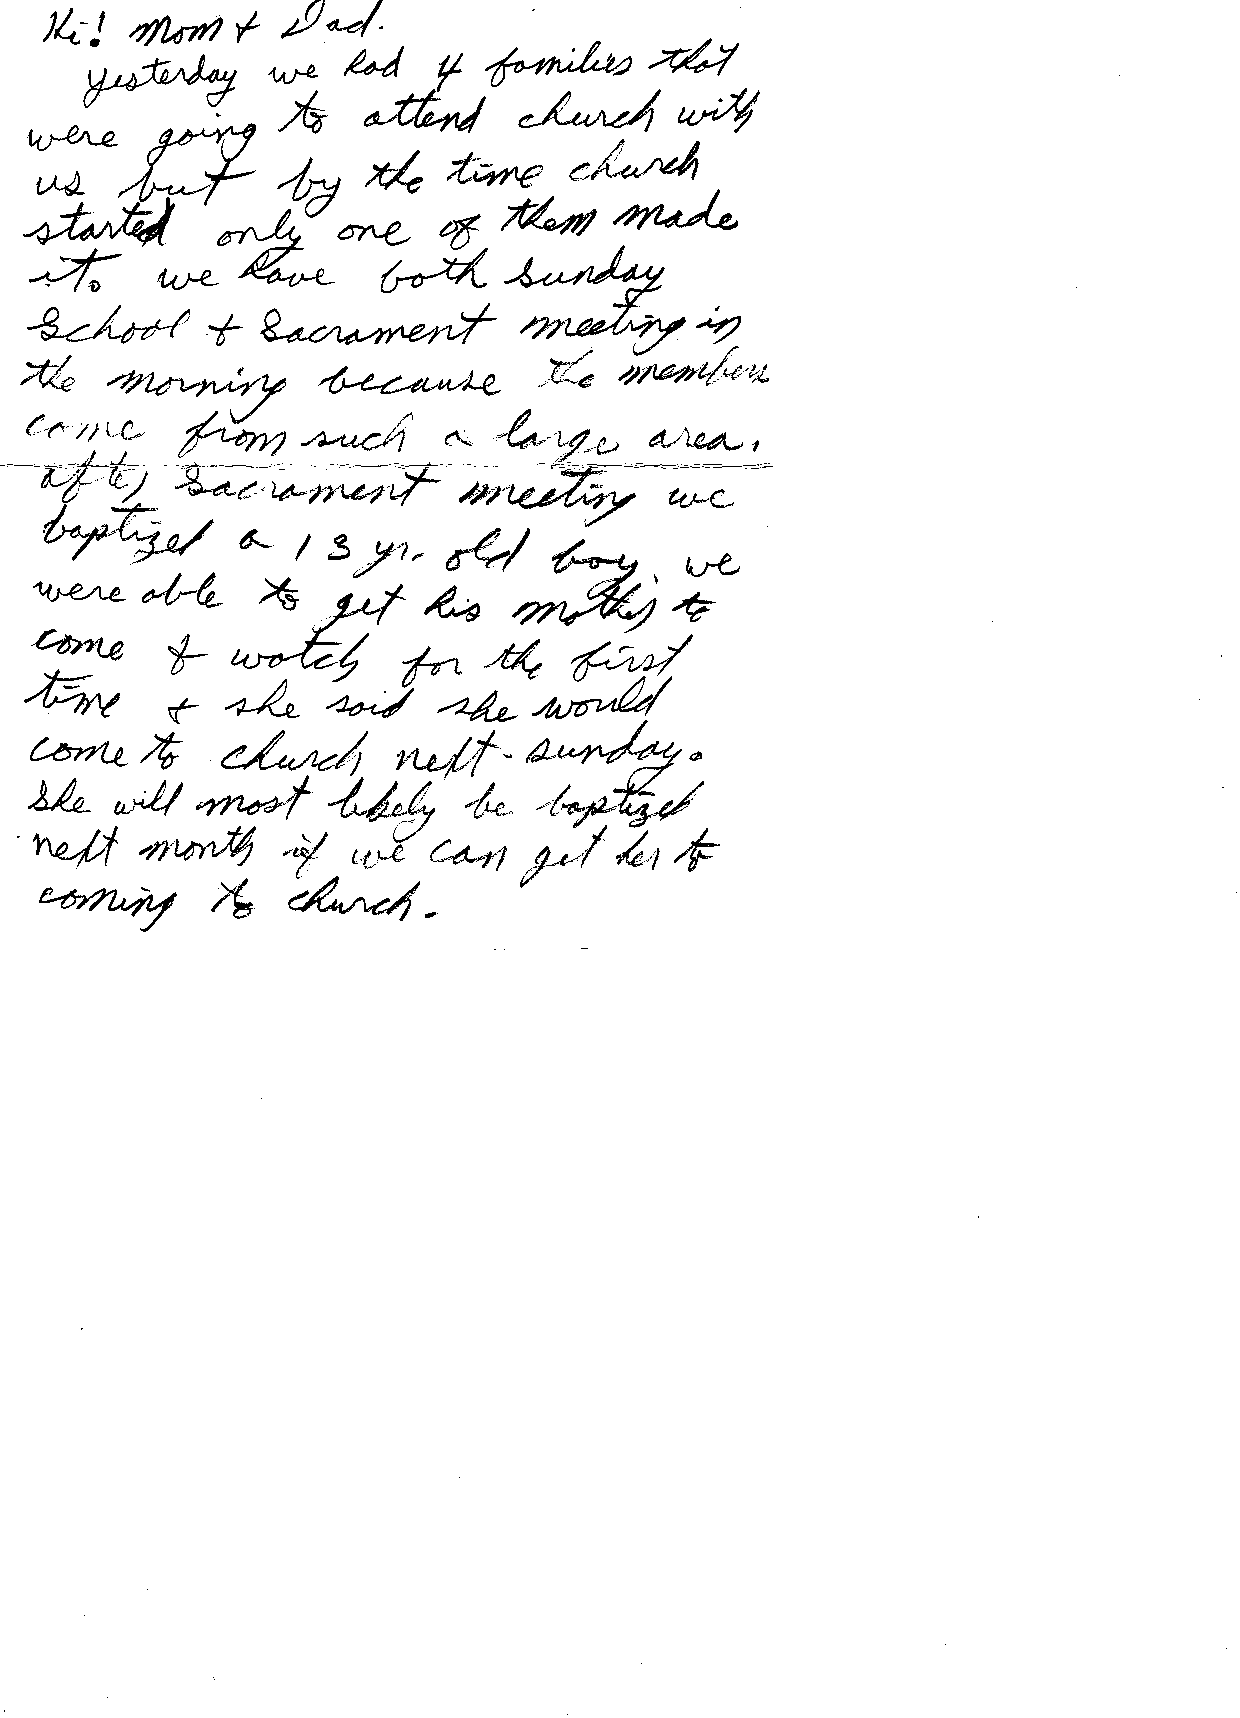 Hi! Mom & Dad.
yesterday we had 4 families that
were going to attend church with
us but by the time church
started only one of them made
it. we have both Sunday
School & Sacrament meeting in
the morning because the members
come from such a large area.
after Sacrament meeting we
baptized a 13 yr. old boy. we
were able to get his mother to
come & watch for the first
time & she said she would
come to church next - sunday.
She will most likely be baptized
next month if we can get her to
coming to church.